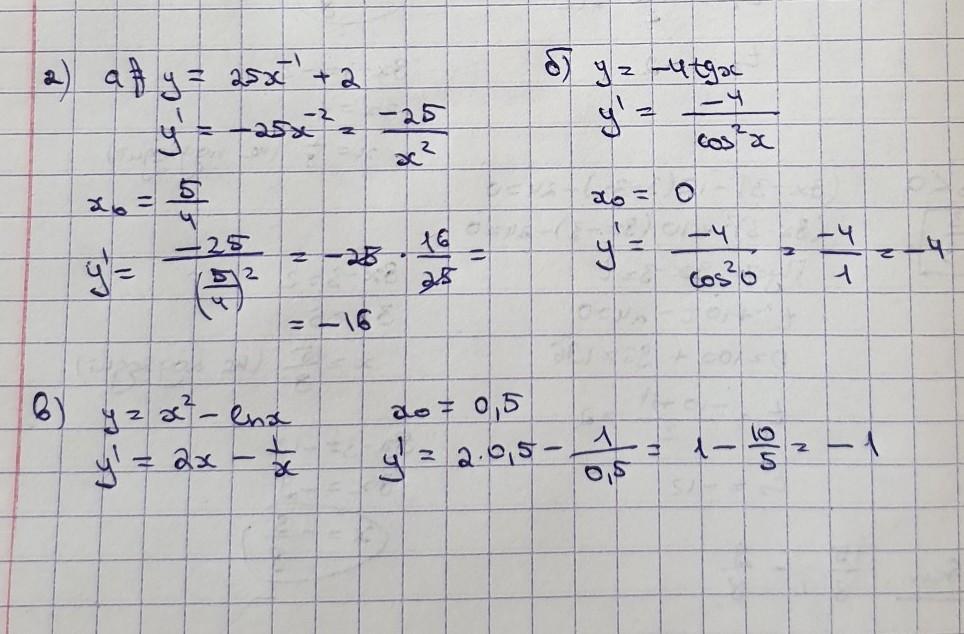 2) а) y = 25x⁻¹ + 2
y' = -25x⁻² = -25/x²
x₀ = 5/4
y' = -25/(5/4)² = -25 · 16/25 =
= -16
б) y = -4tgx
y' = -4/cos²x
x₀ = 0
y' = -4/cos²0 = -4/1 = -4
в) y = x² - lnx x₀ = 0,5
y' = 2x - 1/x y' = 2·0,5 - 1/0,5 = 1 - 10/5 = -1